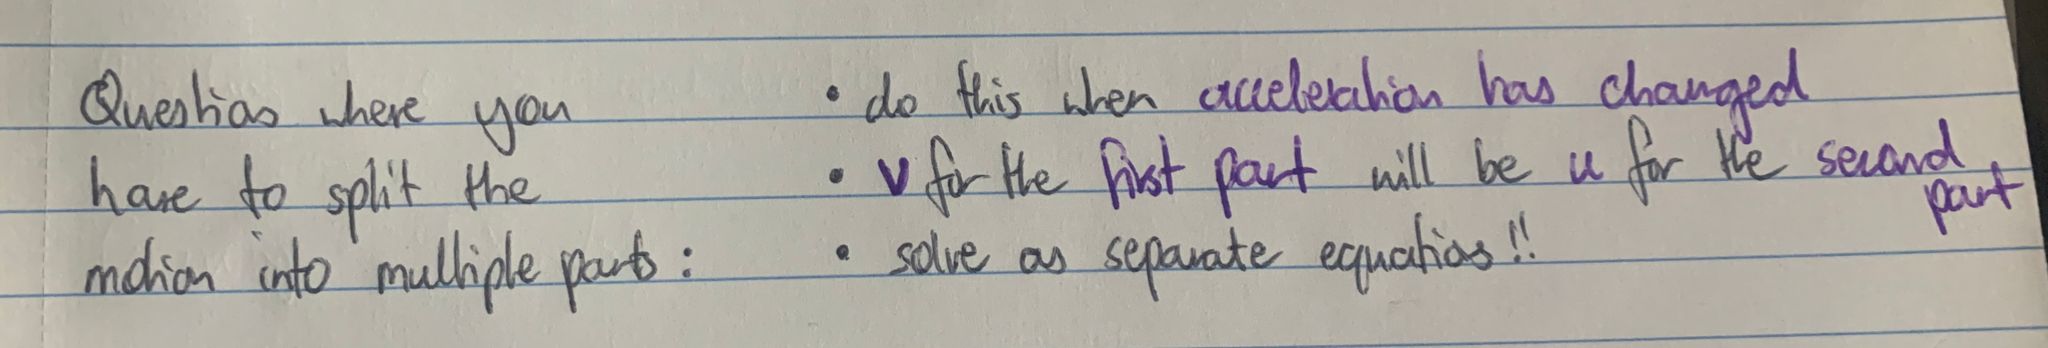 Questions where you
have to split the
motion into multiple parts:
• do this when acceleration has changed
• v for the first part will be u for the second
part
• solve as separate equations!!